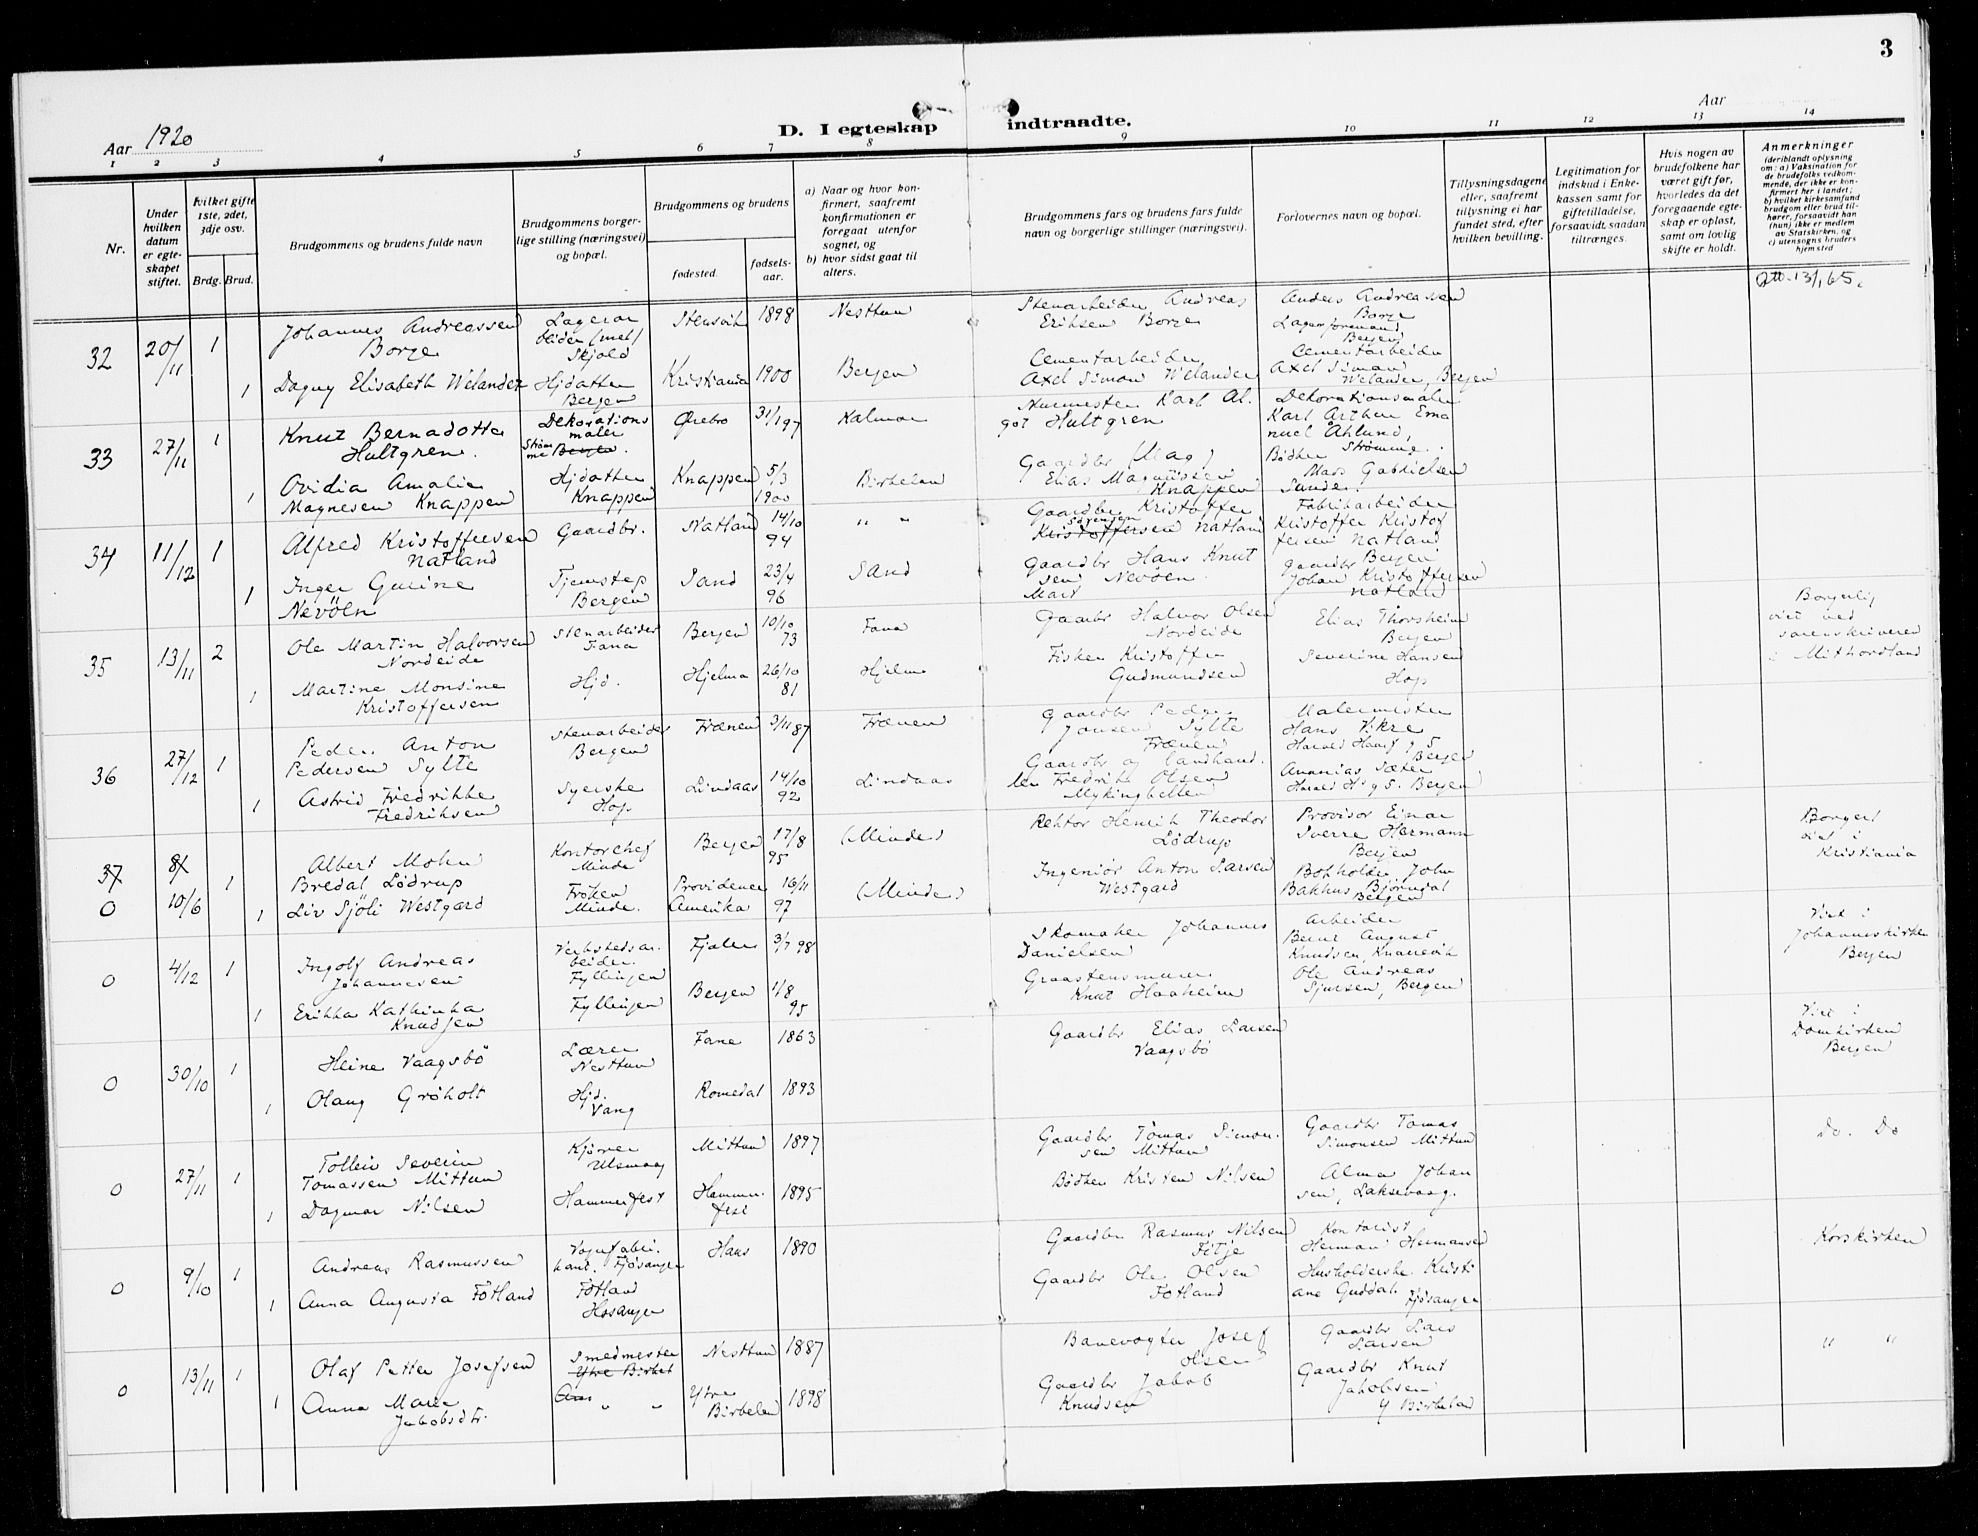 3
Aar 1920
D. I egteskap indtraadte.
Aar
1 2 3 4 5 6 7 8 9 10 11 12 13 14
Nr.
Under hvilken datum er egteskapet stiftet.
Hvilket gifte 1ste, 2det, 3dje osv.
Brdg. Brud.
Brudgommens og brudens fulde navn
Brudgommens borgerlige stilling (næringsvei) og bopæl.
Brudgommens og brudens
fødested.
fødselsaar.
a) Naar og hvor konfirmert, saafremt konfirmationen er foregaat utenfor sognet, og
b) hvor sidst gaat til alters.
Brudgommens fars og brudens fars fulde navn og borgerlige stillinger (næringsvei).
Forlovernes navn og bopæl.
Tillysningsdagene eller, saafremt tillysning ei har fundet sted, efter hvilken bevilling.
Legitimation for indskud i Enkekassen samt for giftetilladelse, forsaavidt saadan tiltrænges.
Hvis nogen av brudefolkene har været gift før, hvorledes da det foregaaende egteskap er opløst, samt om lovlig skifte er holdt.
Anmerkninger
(deriblandt oplysning om: a) Vaksination for de brudefolks vedkommende, der ikke er konfirmert her i landet; b) hvilket kirkesamfund brudgom eller brud tilhører, forsaavidt han (hun) ikke er medlem av Statskirken, og c) utensogns bruders hjemsted
13/1 65.
32 20/11 1 Johannes Andreassen Borge Lagerarbeider (mel) Skjold 1898 Nesttun Stenarbeider Andreas Eriksen Borge Anders Andreassen Borge Lagerformand, Bergen
1 Dagny Elisabeth Welander Hjdatter Bergen Kristiania 1900 Bergen Cementarbeider Axel Simon Welander Cementarbeider Axel Simon Welander, Bergen
33 27/11 1 Knut Bernadotte Hultgren. Dekorationsmaler Strømme Bergen. Ørebro 31/1 97 Kalmar Murmester Karl Al. got Hultgren Dekorationsmaler Karl Arthur Emanuel Åhlund, Strømme.
1 Ovidia Amalie Magnesen Knappen Hjdatter Knappen Knappen 5/3 1900 Birkeland Gaardbr (Mag) Elias Magnussen Knappen Bødker Mars Gabrielsen Sunde.
34 11/12 1 Alfred Kristoffersen Natland Gaardbr. Natland 14/10 94 " " Gaardbr Kristoffer Sørensen Kristoffersen Natland Fabrikarbeider Kristoffer Kristoffersen Natland Bergen
1 Inger Gurine Nevöln Tjenstep Bergen Sand 23/4 96 Sand Gaardbr Hans Knutsen Nevöen. Gaardbr Johan Kristoffersen Natland
35 13/11 2 Ole Martin Halvorsen Nordeide Stenarbeider Fana Bergen 10/10 73 Fana Gaardbr Halvor Olsen Nordeide Elias Thorsheim Bergen Borgerlig viet ved sorenskriveren i Mithordland
1 Martine Monsine Kristoffersen Hjd. Hjelma 26/10 81 Hjelme Fisker Kristoffer Gudmundsen Severine Hansen Hop
36 27/12 1 Peder Anton Pedersen Sylte Stenarbeider Bergen Frænen 3/11 87 Frænen Gaardbr Peder Jonsen Sylte Frænen Malermester Hans Vikre Harald Haarf g 5 Bergen
1 Astrid Fredrikke Fredriksen Syerske Hop Lindaas 14/10 92 Lindaas Gaardbr og landhandler Fredrik Olsen Mykingbelten Ananias Sæter Harald H g 5. Bergen
37 8/ 0 10/6 1 Albert Mohn Bredal Lødrup Kontorchef Minde Bergen 17/8 95 (Minde) Rektor Henrik Theodor Lødrup Provisor Einar Sverre Hermann Bergen Borgerl viet i Kristiania
1 Liv Sjöli Westgard Frøken Minde. Providence Amerika 16/11 97 (Minde) Ingeniør Anton Larsen Westgard Bokholder John Bakhus Bjørndal Bergen
0 4/12 1 Ingolf Andreas Johannesen Verkstedsarbeider. Fyllingen Fjaler 3/7 98 Skomaker Johannes Danielsen Arbeider Bernt August Knudsen, Knarrevik Viet i Johanneskirken Bergen
1 Erikka Kathinka Knudsen Fyllingen Bergen 1/8 95 Graastensmurer Knut Haaheim Ole Andreas Sjursen, Bergen
0 30/10 1 Heine Vaagsbö Lærer Nesttun Fane 1863 Gaardbr Elias Larsen Vaagsbö Viet i Domkirken Bergen
1 Olaug Gröholt Hjd. Vang Romedal 1893
0 27/11 1 Tolleiv Severin Tomassen Mittun Kjører Ulsmaag Mittun 1897 Gaardbr Tomas Simonsen Mittun Gaardbr Tomas Simonsen Mittun Do. Do
1 Dagmar Nilsen Hammerfest Hammerfest 1895 Bødker Kristen Nilsen Alma Johansen, Laksevaag.
0 9/10 1 Andreas Rasmussen Vognfabrikant. Fjøsanger Haus 1890 Gaardbr Rasmus Nilsen Fitje Kontorist Herman Hermansen Korskirken
1 Anna Augusta Fotland Fotland Hosanger Gaardbr Ole Olsen Fotland Husholderske Kristiane Guddal. Fjøsanger
0 13/11 1 Olaf Petter Josefsen Smedmester Ytre Birkel Nesttun 1887 Banevogter Josef Olsen Gaardbr Lars Larsen " "
1 Anna Marie Jakobsdtr. " " Ytre Birkelan 1898 Gaardbr Jakob Knudsen Gaardbr Knut Jakobsen Y Birkeland